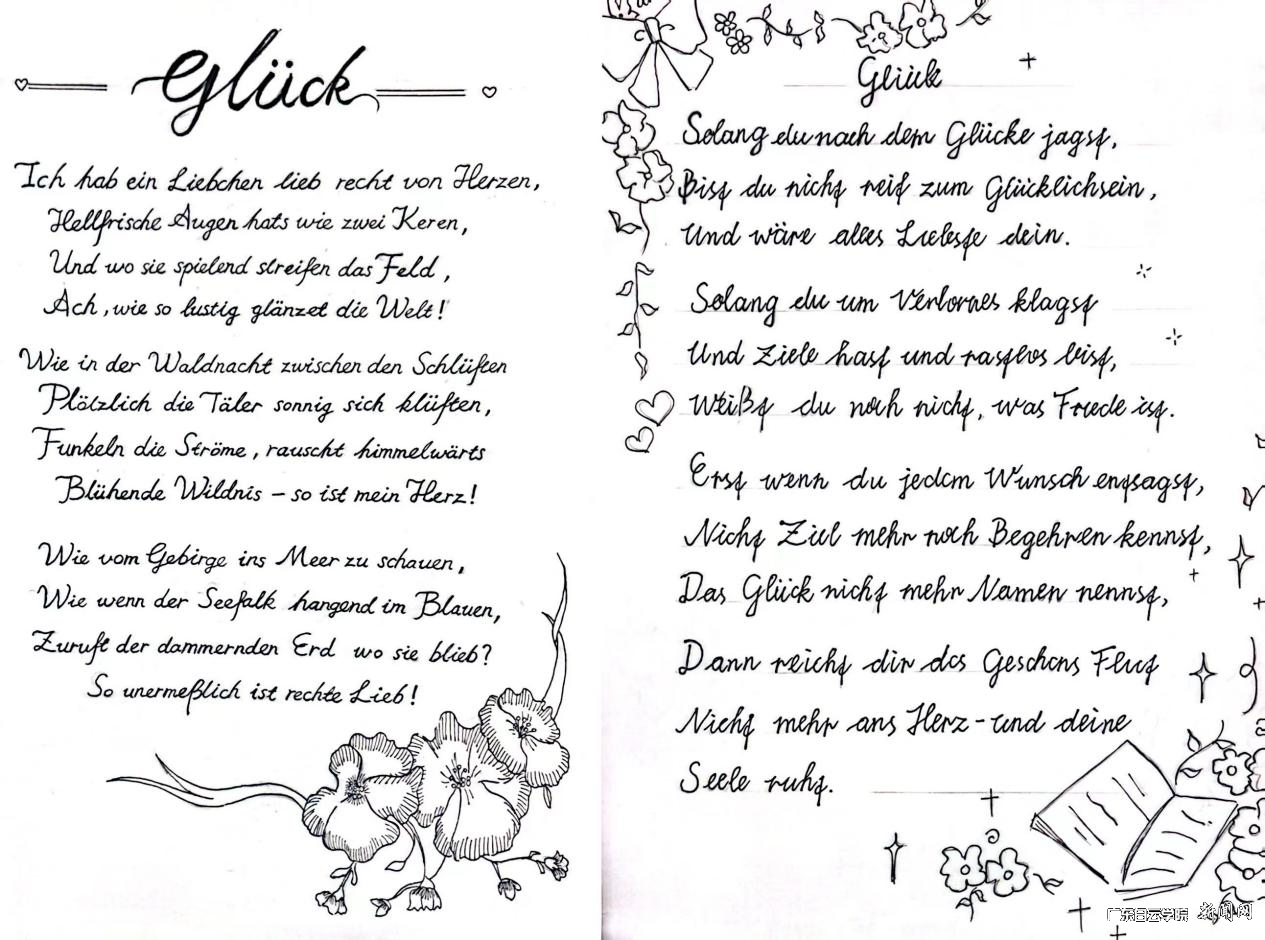 Glück
Ich hab ein Liebchen lieb recht von Herzen,
Hellfrische Augen hats wie zwei Keren,
Und wo sie spielend streifen das Feld,
Ach, wie so lustig glänzet die Welt!
Wie in der Waldnacht zwischen den Schlüften
Plötzlich die Täler sonnig sich klüften,
Funkeln die Ströme, rauscht himmelwärts
Blühende Wildnis – so ist mein Herz!
Wie vom Gebirge ins Meer zu schauen,
Wie wenn der Seefalk hangend im Blauen,
Zuruft der dammernden Erd wo sie blieb?
So unermeßlich ist rechte Lieb!
Glück
Solang du nach dem Glücke jagst,
Bist du nicht reif zum Glücklichsein,
Und wäre alles Liebste dein.
Solang du um Verlornes klagst
Und Ziele hast und rastlos bist,
Weißt du noch nicht, was Friede ist.
Erst wenn du jedem Wunsch entsagst,
Nicht Ziel mehr noch Begehren kennst,
Das Glück nicht mehr Namen nennst,
Dann reicht dir das Geschehns Flut
Nicht mehr ans Herz – und deine
Seele ruht.
广东白云学院 新闻网